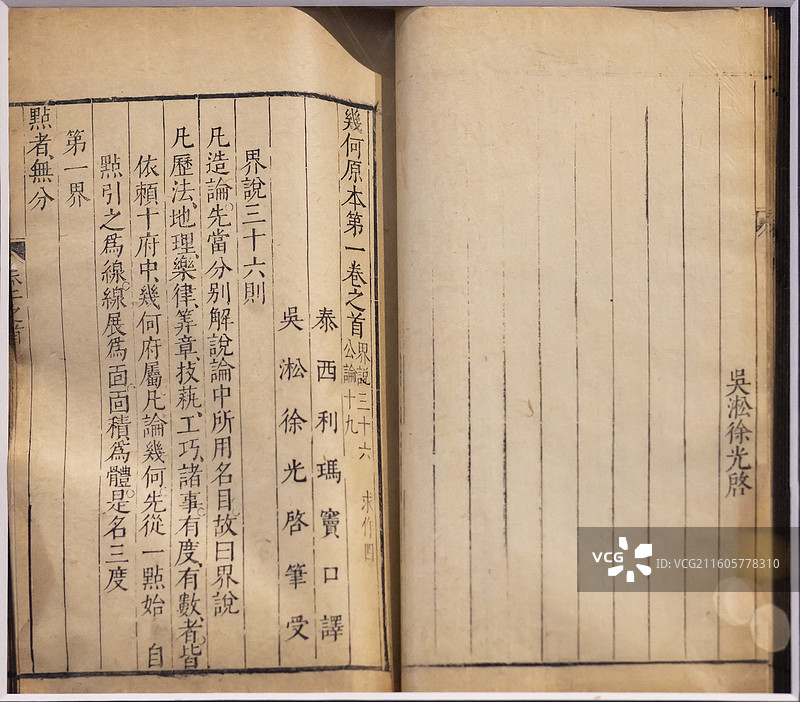 吳淞徐光啓
幾何原本第一卷之首 界說三十六 公論十九 求作四
泰西利瑪竇口譯
吳淞徐光啓筆受
界說三十六則
凡造論。先當分別解說論中所用名目。故曰界說
凡歷法、地理、樂律、筭章、技藝、工巧、諸事。有度、有數、者。皆
依賴十府中、幾何府屬。凡論幾何。先從一點始 自
點引之爲線。線展爲面。面積爲體。是名三度
第一界
點者、無分
VCG
ID:VCG211605778310